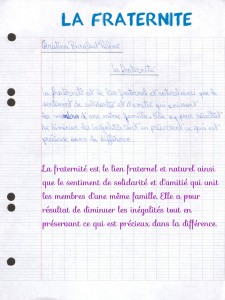 LA FRATERNITE
la fraternité
la fraternité est le lien fraternel et naturel ainsi que le
sentiment de solidarité et d'amitié qui unissent
les membres d'une même famille. Elle a pour résultat
de diminuer les inégalités tout en préservant ce qui est
précieux dans la différence.
La fraternité est le lien fraternel et naturel ainsi
que le sentiment de solidarité et d'amitié qui unit
les membres d'une même famille. Elle a pour
résultat de diminuer les inégalités tout en
préservant ce qui est précieux dans la différence.